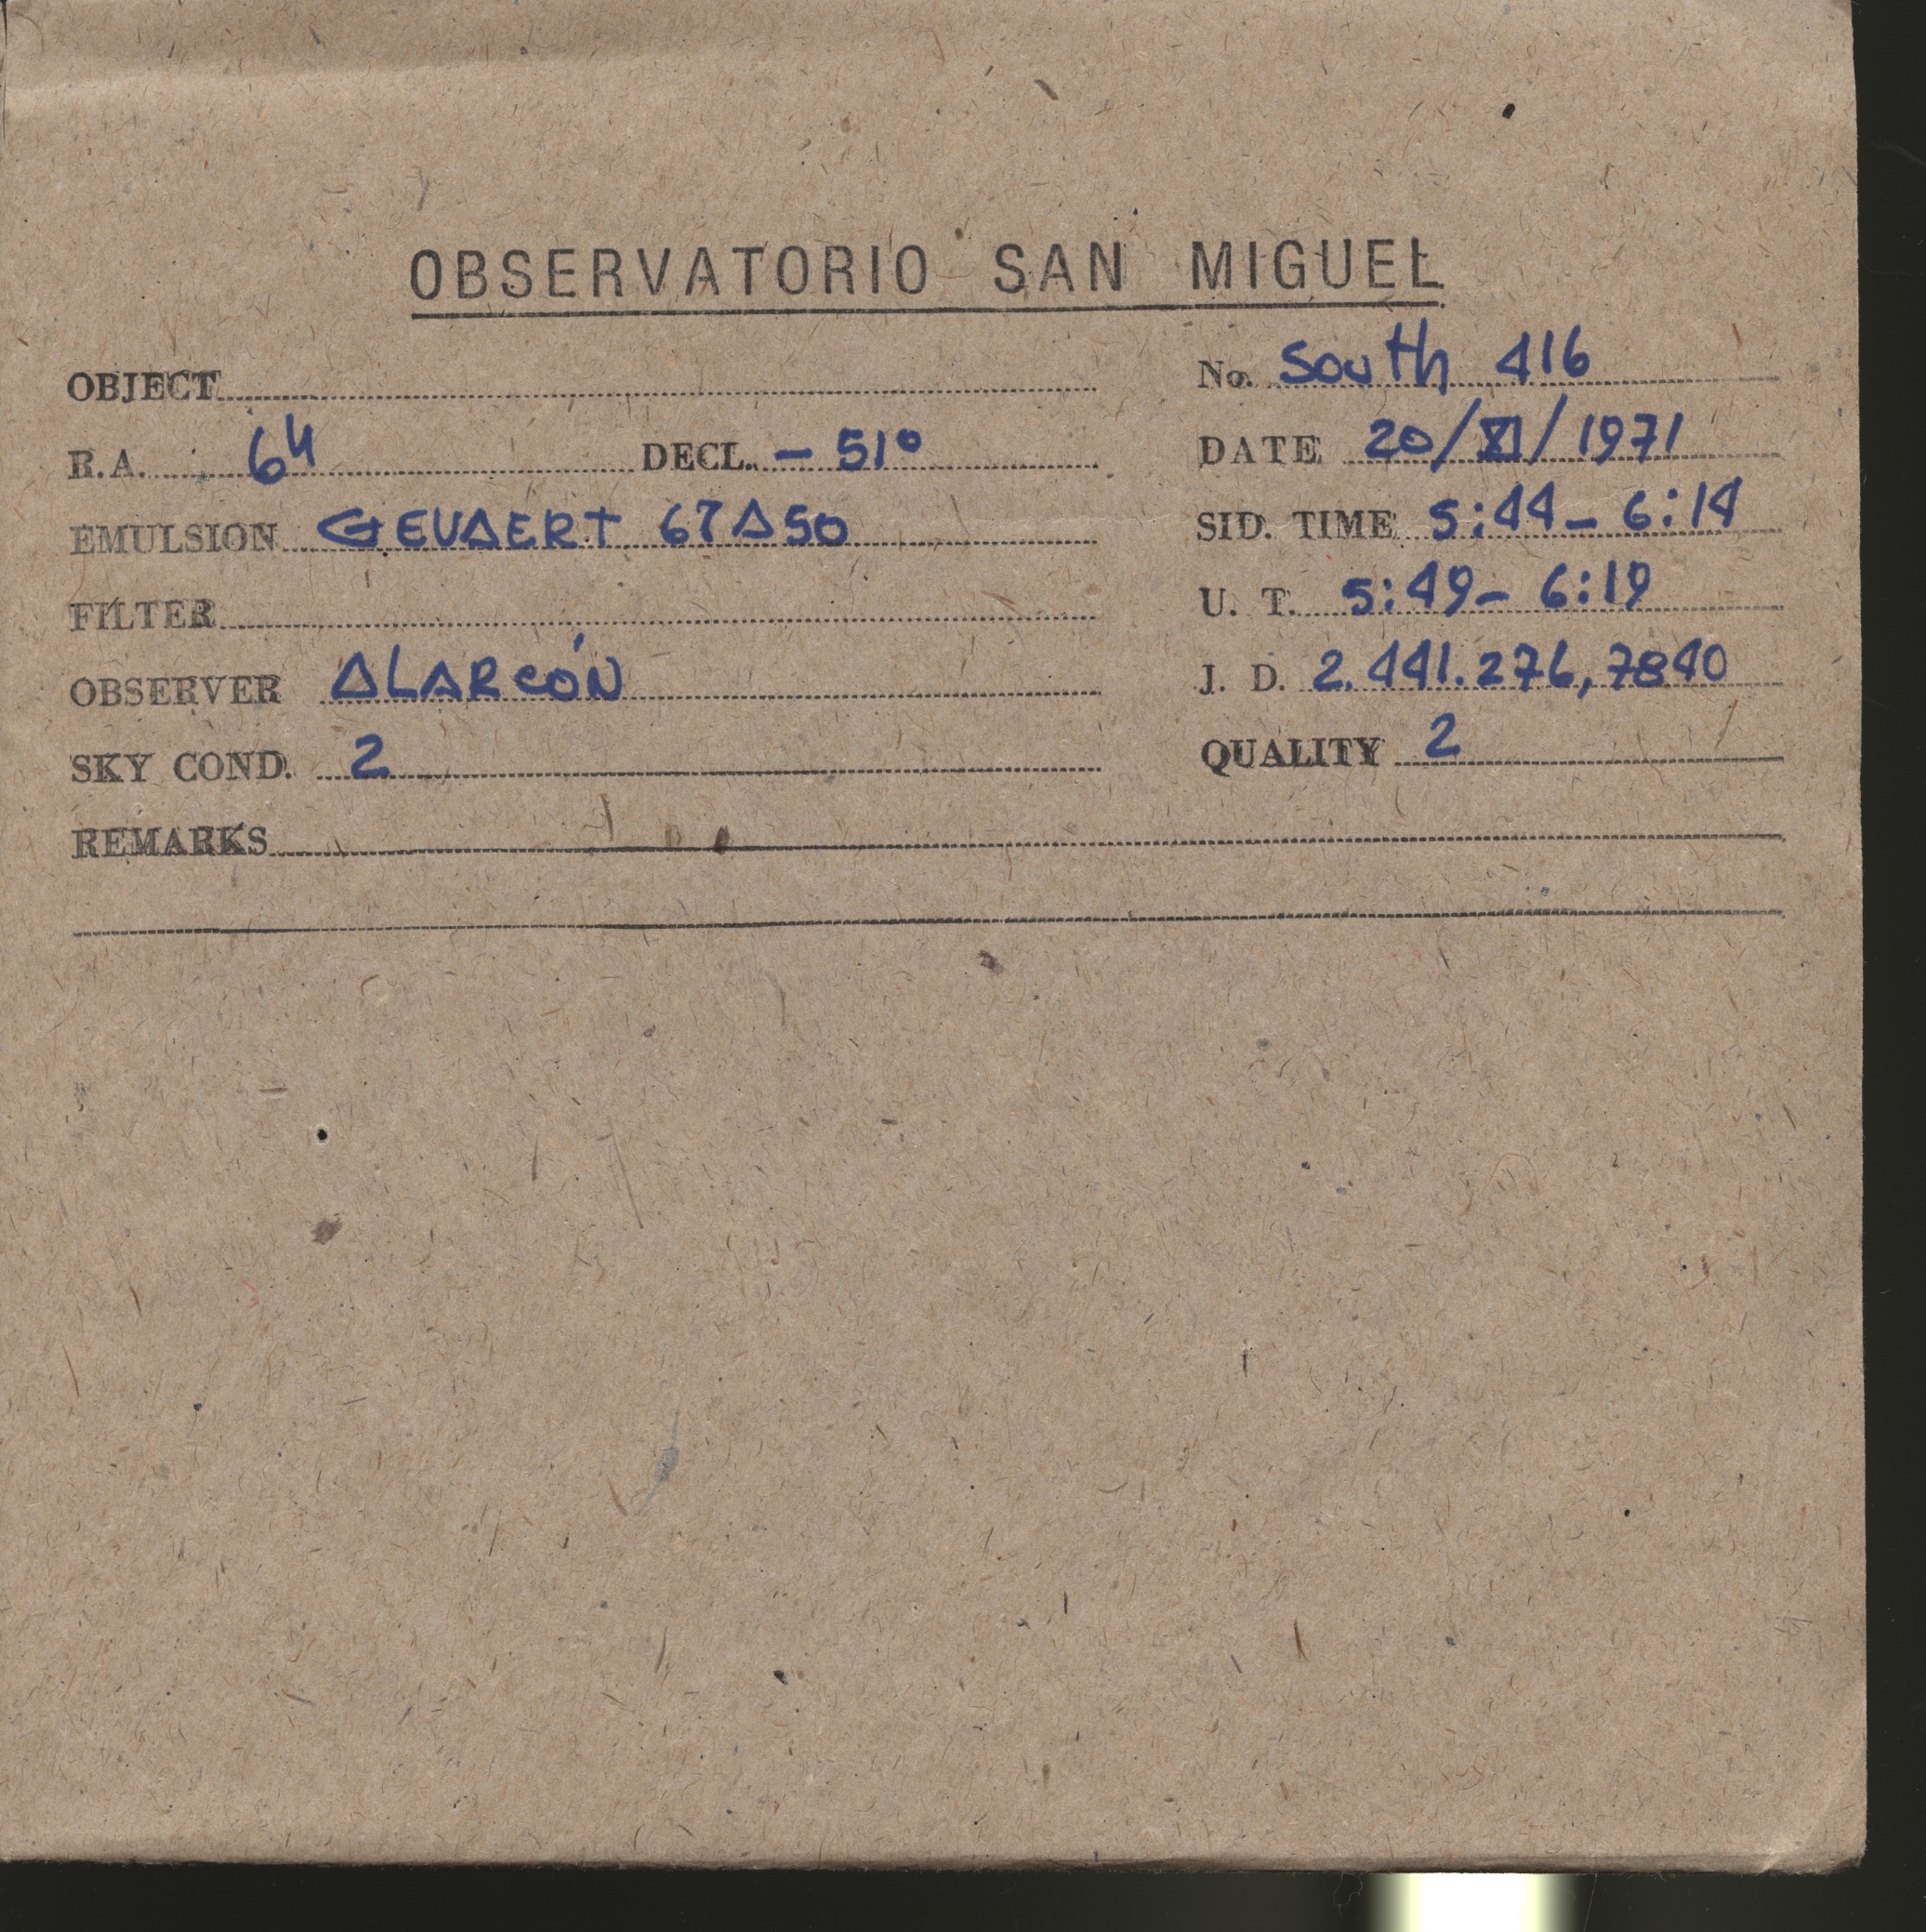 OBSERVATORIO SAN MIGUEL
OBJECT No. South 416
R.A. 6h DECL. - 51° DATE 20/XI/1971
EMULSION GEVAERT 67A50 SID. TIME 5:44 - 6:14
FILTER U. T. 5:49 - 6:19
OBSERVER ALARCÓN J. D. 2.441.276,7840
SKY COND. 2 QUALITY 2
REMARKS